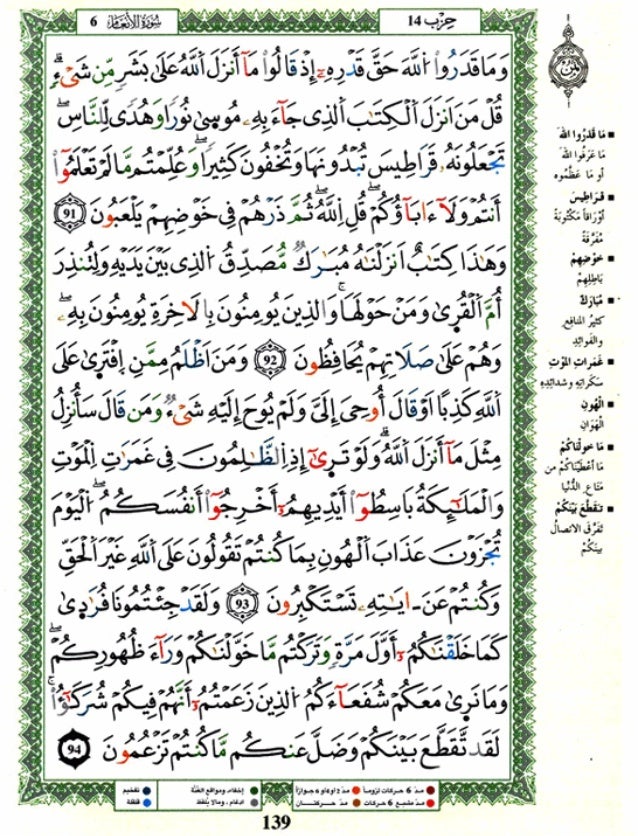 سُورَةُ الأَنْعَامِ 6
حِزْب 14
وَمَا قَدَرُوا اُللَّهَ حَقَّ قَدْرِهِۦٓ إِذْ قَالُوا مَآ أَنزَلَ اَللَّهُ عَلَىٰ بَشَرٍ مِّن شَيْءٍۖ
قُلْ مَنَ اَنزَلَ اَلْكِتَٰبَ اَلذِى جَآءَ بِهِۦ مُوسۭىٰ نُورًا وَهُدًى لِّلنَّاسِۖ
تَجْعَلُونَهُۥ قَرَاطِيسَ تُبْدُونَهَا وَتُخْفُونَ كَثِيرًاۖ وَعُلِّمْتُم مَّا لَمْ تَعْلَمُوٓا
أَنتُمْ وَلَآ ءَابَآؤُكُمْۖ قُلِ اِللَّهُۖ ثُمَّ ذَرْهُمْ فِى خَوْضِهِمْ يَلْعَبُونَ 91
وَهَٰذَا كِتَٰبٌ اَنزَلْنَٰهُ مُبَٰرَكٌ مُّصَدِّقُ اُلذِى بَيْنَ يَدَيْهِ وَلِتُنذِرَ
أُمَّ اَلْقُرۭىٰ وَمَنْ حَوْلَهَاۖ وَالذِينَ يُومِنُونَ بِالَاخِرَةِ يُومِنُونَ بِهِۦۖ
وَهُمْ عَلَىٰ صَلَاتِهِمْ يُحَافِظُونَ 92 وَمَنَ اَظْلَمُ مِمَّنِ اِفْتَرۭىٰ عَلَى
اَللَّهِ كَذِبًا اَوْ قَالَ أُوحِىَ إِلَىَّ وَلَمْ يُوحَ إِلَيْهِ شَىْءٌ وَمَن قَالَ سَأُنزِلُ
مِثْلَ مَآ أَنزَلَ اَللَّهُۖ وَلَوْ تَرۭىٰٓ إِذِ اِلظَّٰلِمُونَ فِى غَمَرَٰتِ اِلْمَوْتِ
وَالْمَلَٰٓئِكَةُ بَاسِطُوٓا أَيْدِيهِمُۥٓ أَخْرِجُوٓا أَنفُسَكُمُۖ اُلْيَوْمَ
تُجْزَوْنَ عَذَابَ اَلْهُونِ بِمَا كُنتُمْ تَقُولُونَ عَلَى اَللَّهِ غَيْرَ اَلْحَقِّ
وَكُنتُمْ عَنَ ـايَٰتِهِۦ تَسْتَكْبِرُونَ 93 وَلَقَدْ جِئْتُمُونَا فُرَٰدۭىٰ
كَمَا خَلَقْنَٰكُمُۥٓ أَوَّلَ مَرَّةٍ وَتَرَكْتُم مَّا خَوَّلْنَٰكُمْ وَرَآءَ ظُهُورِكُمْۖ
وَمَا نَرۭىٰ مَعَكُمْ شُفَعَآءَكُمُ اُلذِينَ زَعَمْتُمُۥٓ أَنَّهُمْ فِيكُمْ شُرَكَٰٓؤُاۖ
لَقَد تَّقَطَّعَ بَيْنَكُمْ وَضَلَّ عَنكُم مَّا كُنتُمْ تَزْعُمُونَ 94
ثمن
■ مَا قَدَرُوا اللَّهَ
مَا عَرَفُوا اللَّهَ
أو مَا عَظَّمُوه
■ قَرَاطِيسَ
أوْرَاقاً مَكْتُوبَةً
مُفَرَّقَةً
■ خَوْضِهِمْ
بَاطِلِهِمْ
■ مُبَارَكٌ
كثيرُ المنافِعِ
والفوائِدِ
■ غَمَرَاتِ المَوْتِ
سَكَرَاتِهِ وشدائِدِهِ
■ الْهُونِ
الْهَوَانِ
■ مَا خَوَّلْنَاكُمْ
مَا أعْطَيْنَاكُمْ من
مَتَاعِ الدُّنْيَا
■ تَقَطَّعَ بَيْنَكُمْ
تَفَرَّقَ الاتصالُ
بينَكُمْ
مدّ 6 حركات لزوماً مدّ 2 أو 4 أو 6 جوازاً إخفاء، ومواقع الغُنَّة تفخيم
مدّ مشبع 6 حركات مدّ حركتان إدغام، وما لا يُلفظ قلقلة
139